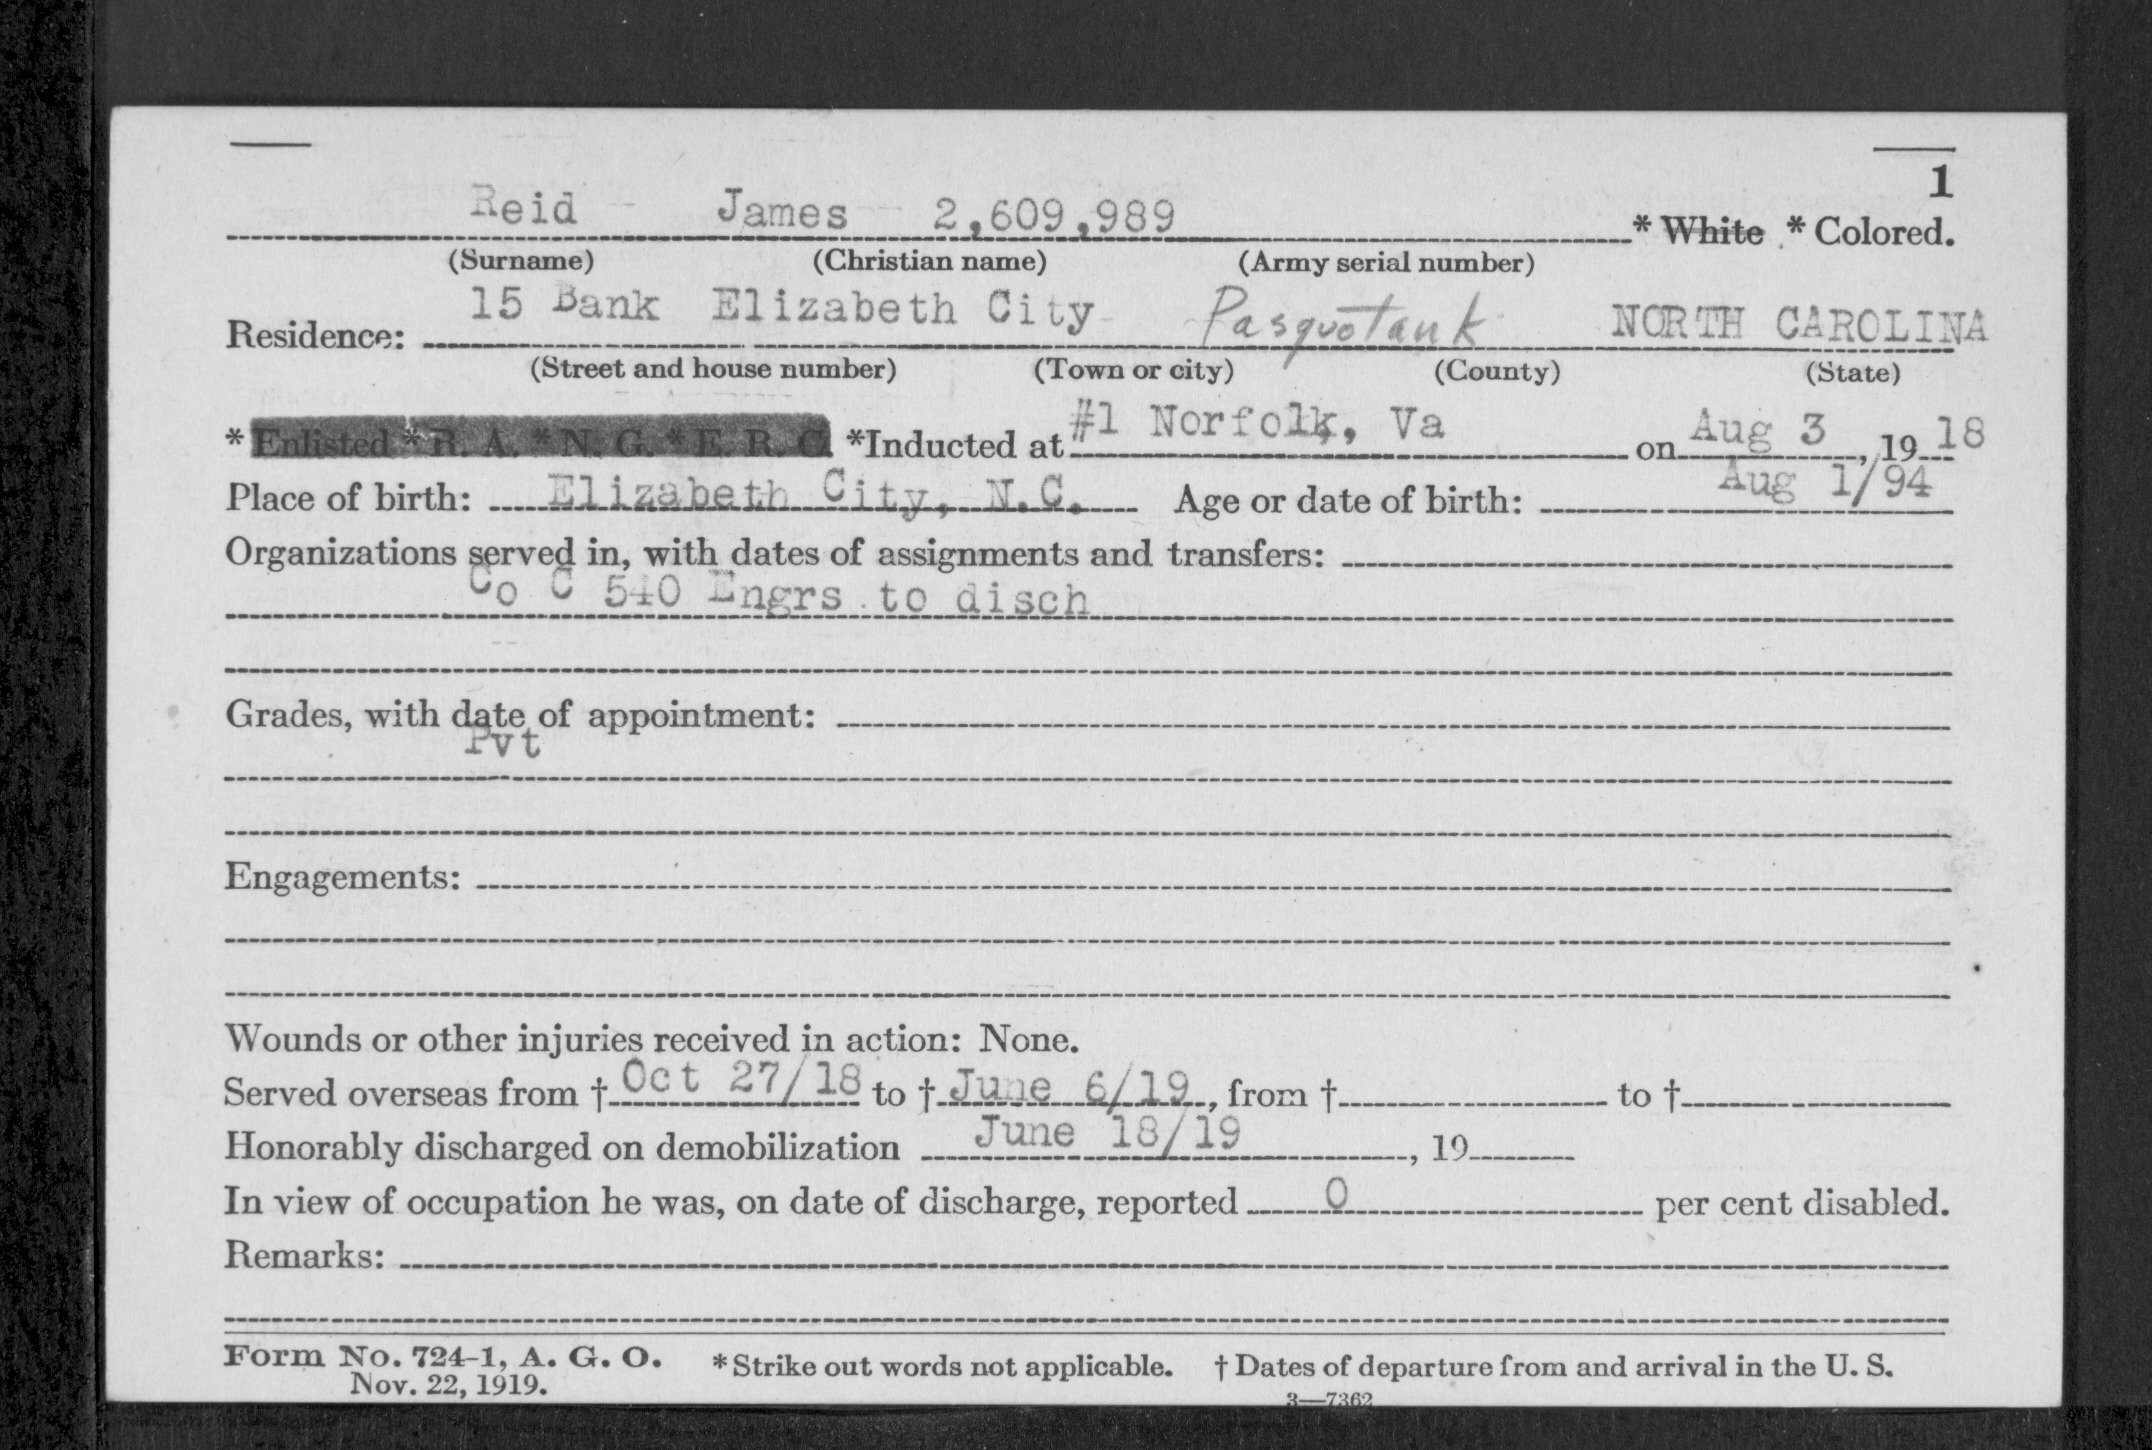 1
Reid James 2,609,989 * White * Colored.
(Surname) (Christian name) (Army serial number)
15 Bank Elizabeth City Pasquotank NORTH CAROLINA
Residence:
(Street and house number) (Town or city) (County) (State)
* Enlisted * R. A. * N. G. * E. R. C. *Inducted at #1 Norfolk, Va on Aug 3, 1918
Place of birth: Elizabeth City, N.C. Age or date of birth: Aug 1/94
Organizations served in, with dates of assignments and transfers:
Co C 540 Engrs to disch
Grades, with date of appointment:
Pvt
Engagements:
Wounds or other injuries received in action: None.
Served overseas from † Oct 27/18 to † June 6/19, from † to †
Honorably discharged on demobilization June 18/19, 19
In view of occupation he was, on date of discharge, reported 0 per cent disabled.
Remarks:
Form No. 724-1, A. G. O. * Strike out words not applicable. † Dates of departure from and arrival in the U. S.
Nov. 22, 1919.
3—7362